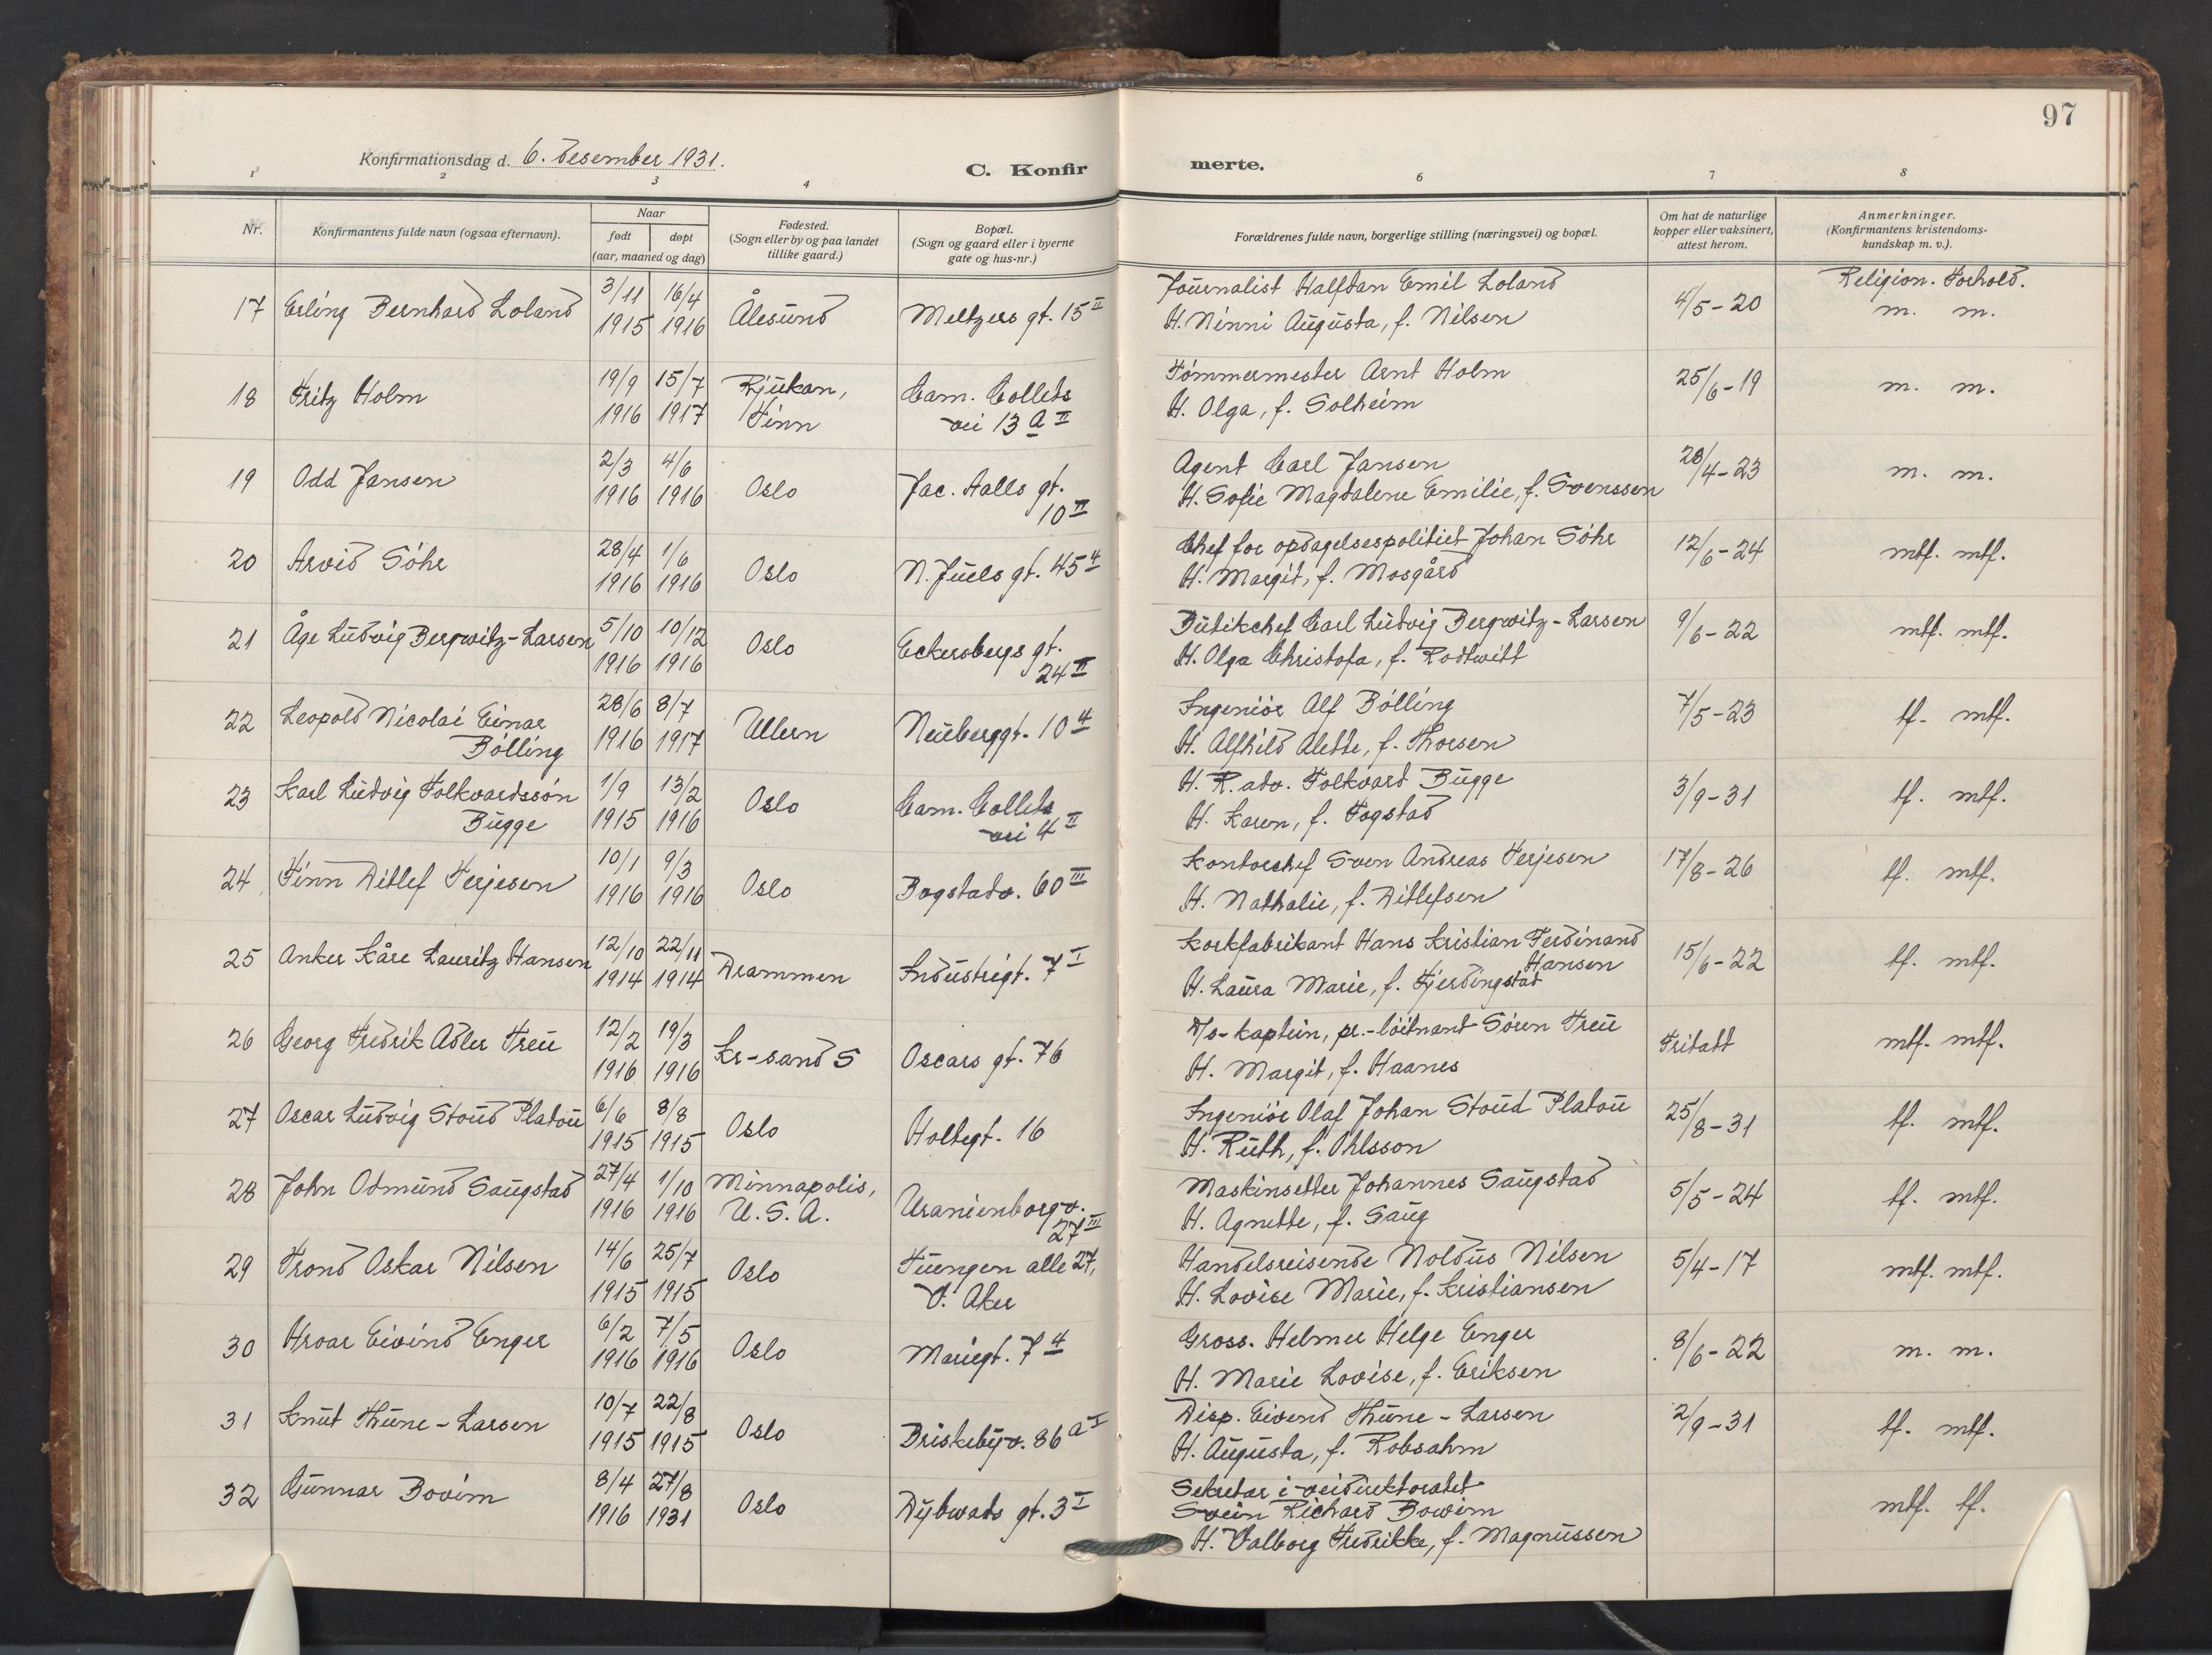 97
Konfirmationsdag d. 6. desember 1931.
C. Konfir
merte.
1 2 3 4 6 7 8
Nr.
Konfirmantens fulde navn (ogsaa efternavn).
Naar
født døpt
(aar, maaned og dag)
Fødested.
(Sogn eller by og paa landet
tillike gaard.)
Bopæl.
(Sogn og gaard eller i byerne
gate og hus-nr.)
Forældrenes fulde navn, borgerlige stilling (næringsvei) og bopæl.
Om hat de naturlige
kopper eller vaksinert,
attest herom.
Anmerkninger.
(Konfirmantens kristendoms-
kundskap m. v.).
Religion. Forhold.
17 Erling Bernhard Loland 3/11 1915 16/4 1916 Ålesund Meltzers gt. 15 II
Journalist Halfdan Emil Loland
H. Ninni Augusta, f. Nilsen
4/5-20 m. m.
18 Fritz Holm 19/9 1916 15/7 1917 Rjukan,
Tinn
Cam. Collets
vei 13 a II
Tømmermester Arnt Holm
H. Olga, f. Solheim
25/6-19 m. m.
19 Odd Jansen 2/3 1916 4/6 1916 Oslo Jac. Aalls gt.
10 II
Agent Carl Jansen
H. Sofie Magdalene Emilie, f. Svenssen
28/4-23 m. m.
20 Arvid Söhr 28/4 1916 1/6 1916 Oslo N. Juels gt. 45 4
Chef for opdagelsespolitiet Johan Söhr
H. Margit, f. Mosgård
12/6-24 mtf. mtf.
21 Åge Ludvig Bergwitz-Larsen 5/10 1916 10/12 1916 Oslo Eckersbergs gt.
24 II
Butikchef Carl Ludvig Bergwitz-Larsen
H. Olga Christofa, f. Rodtwitt
9/6-22 mtf. mtf.
22 Leopold Nicolai Einar
Bölling
28/6 1916 8/7 1917 Ullern Neuberggt. 10 4
Ingeniör Alf Bölling
H. Alfhild Alette, f. Thorsen
7/5-23 tf. mtf.
23 Karl Ludvig Folkvardssön
Bugge
1/9 1915 13/2 1916 Oslo Cam. Collets
vei 4 II
H. R. adv. Folkvard Bugge
H. Karen, f. Fogstad
3/9-31 tf. mtf.
24 Finn Ditlef Terjesen 10/1 1916 9/3 1916 Oslo Bogstadv. 60 III
Kontorchef Sven Andreas Terjesen
H. Nathalie, f. Ditlefsen
17/8-26 tf. mtf.
25 Anker Kåre Lauritz Hansen 12/10 1914 22/11 1914 Drammen Industrigt. 7 I
Korkfabrikant Hans Kristian Ferdinand
Hansen
H. Laura Marie, f. Fjerdingstad
15/6-22 tf. mtf.
26 Georg Fredrik Adler Treu 12/2 1916 19/3 1916 Kr-sand S Oscars gt. 76
D/s-kaptein, pr.-löitnant Sören Treu
H. Margit, f. Haanes
Fritatt mtf. mtf.
27 Oscar Ludvig Stoud Platou 6/6 1915 8/8 1915 Oslo Holtegt. 16
Ingeniör Olaf Johan Stoud Platou
H. Ruth, f. Ohlsson
25/8-31 tf. mtf.
28 John Odmund Saugstad 27/4 1916 1/10 1916 Minnapolis,
U. S. A.
Uranienborgv.
27 III
Maskinsetter Johannes Saugstad
H. Agnette, f. Saug
5/5-24 tf. mtf.
29 Trond Oskar Nilsen 14/6 1915 25/7 1915 Oslo Tuengen alle 27,
V. Aker
Handelsreisende Noldus Nilsen
H. Lovise Marie, f. Kristiansen
5/4-17 mtf. mtf.
30 Hroar Eivind Enger 6/2 1916 7/5 1916 Oslo Mariegt. 7 4
Gross. Helmer Helge Enger
H. Marie Lovise, f. Eriksen
8/6-22 m. m.
31 Knut Thune-Larsen 10/7 1915 22/8 1915 Oslo Briskebyv. 86 a I
Disp. Eivend Thune-Larsen
H. Augusta, f. Robsahm
2/9-31 tf. mtf.
32 Gunnar Bovim 8/4 1916 27/8 1931 Oslo Dybwads gt. 3 I
Sekretær i veidirektoratet
Svein Richard Bowim
H. Valborg Fredrikke, f. Magnussen
mtf. tf.